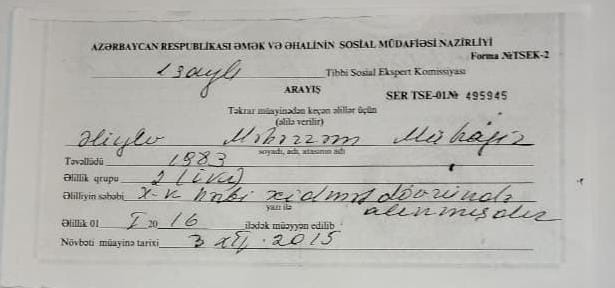 AZƏRBAYCAN RESPUBLİKASI ƏMƏK VƏ ƏHALİNİN SOSİAL MÜDAFİƏSİ NAZİRLİYİ
Forma №TSEK-2
2 saylı Tibbi Sosial Ekspert Komissiyası
ARAYIŞ SER TSE-01.№ 495945
Təkrar müayinədən keçən əlillər üçün
(əlilə verilir)
Əliyev Məhərrəm
soyadı, adı, atasının adı
Təvəllüdü 1983
Əlillik qrupu 2 (iki)
Əlilliyin səbəbi x-k hərbi xidmət dövründə
yazı ilə alınmışdır
Əlillik 01 I 2016 ilədək müəyyən edilib
Növbəti müayinə tarixi 3 XII. 2015